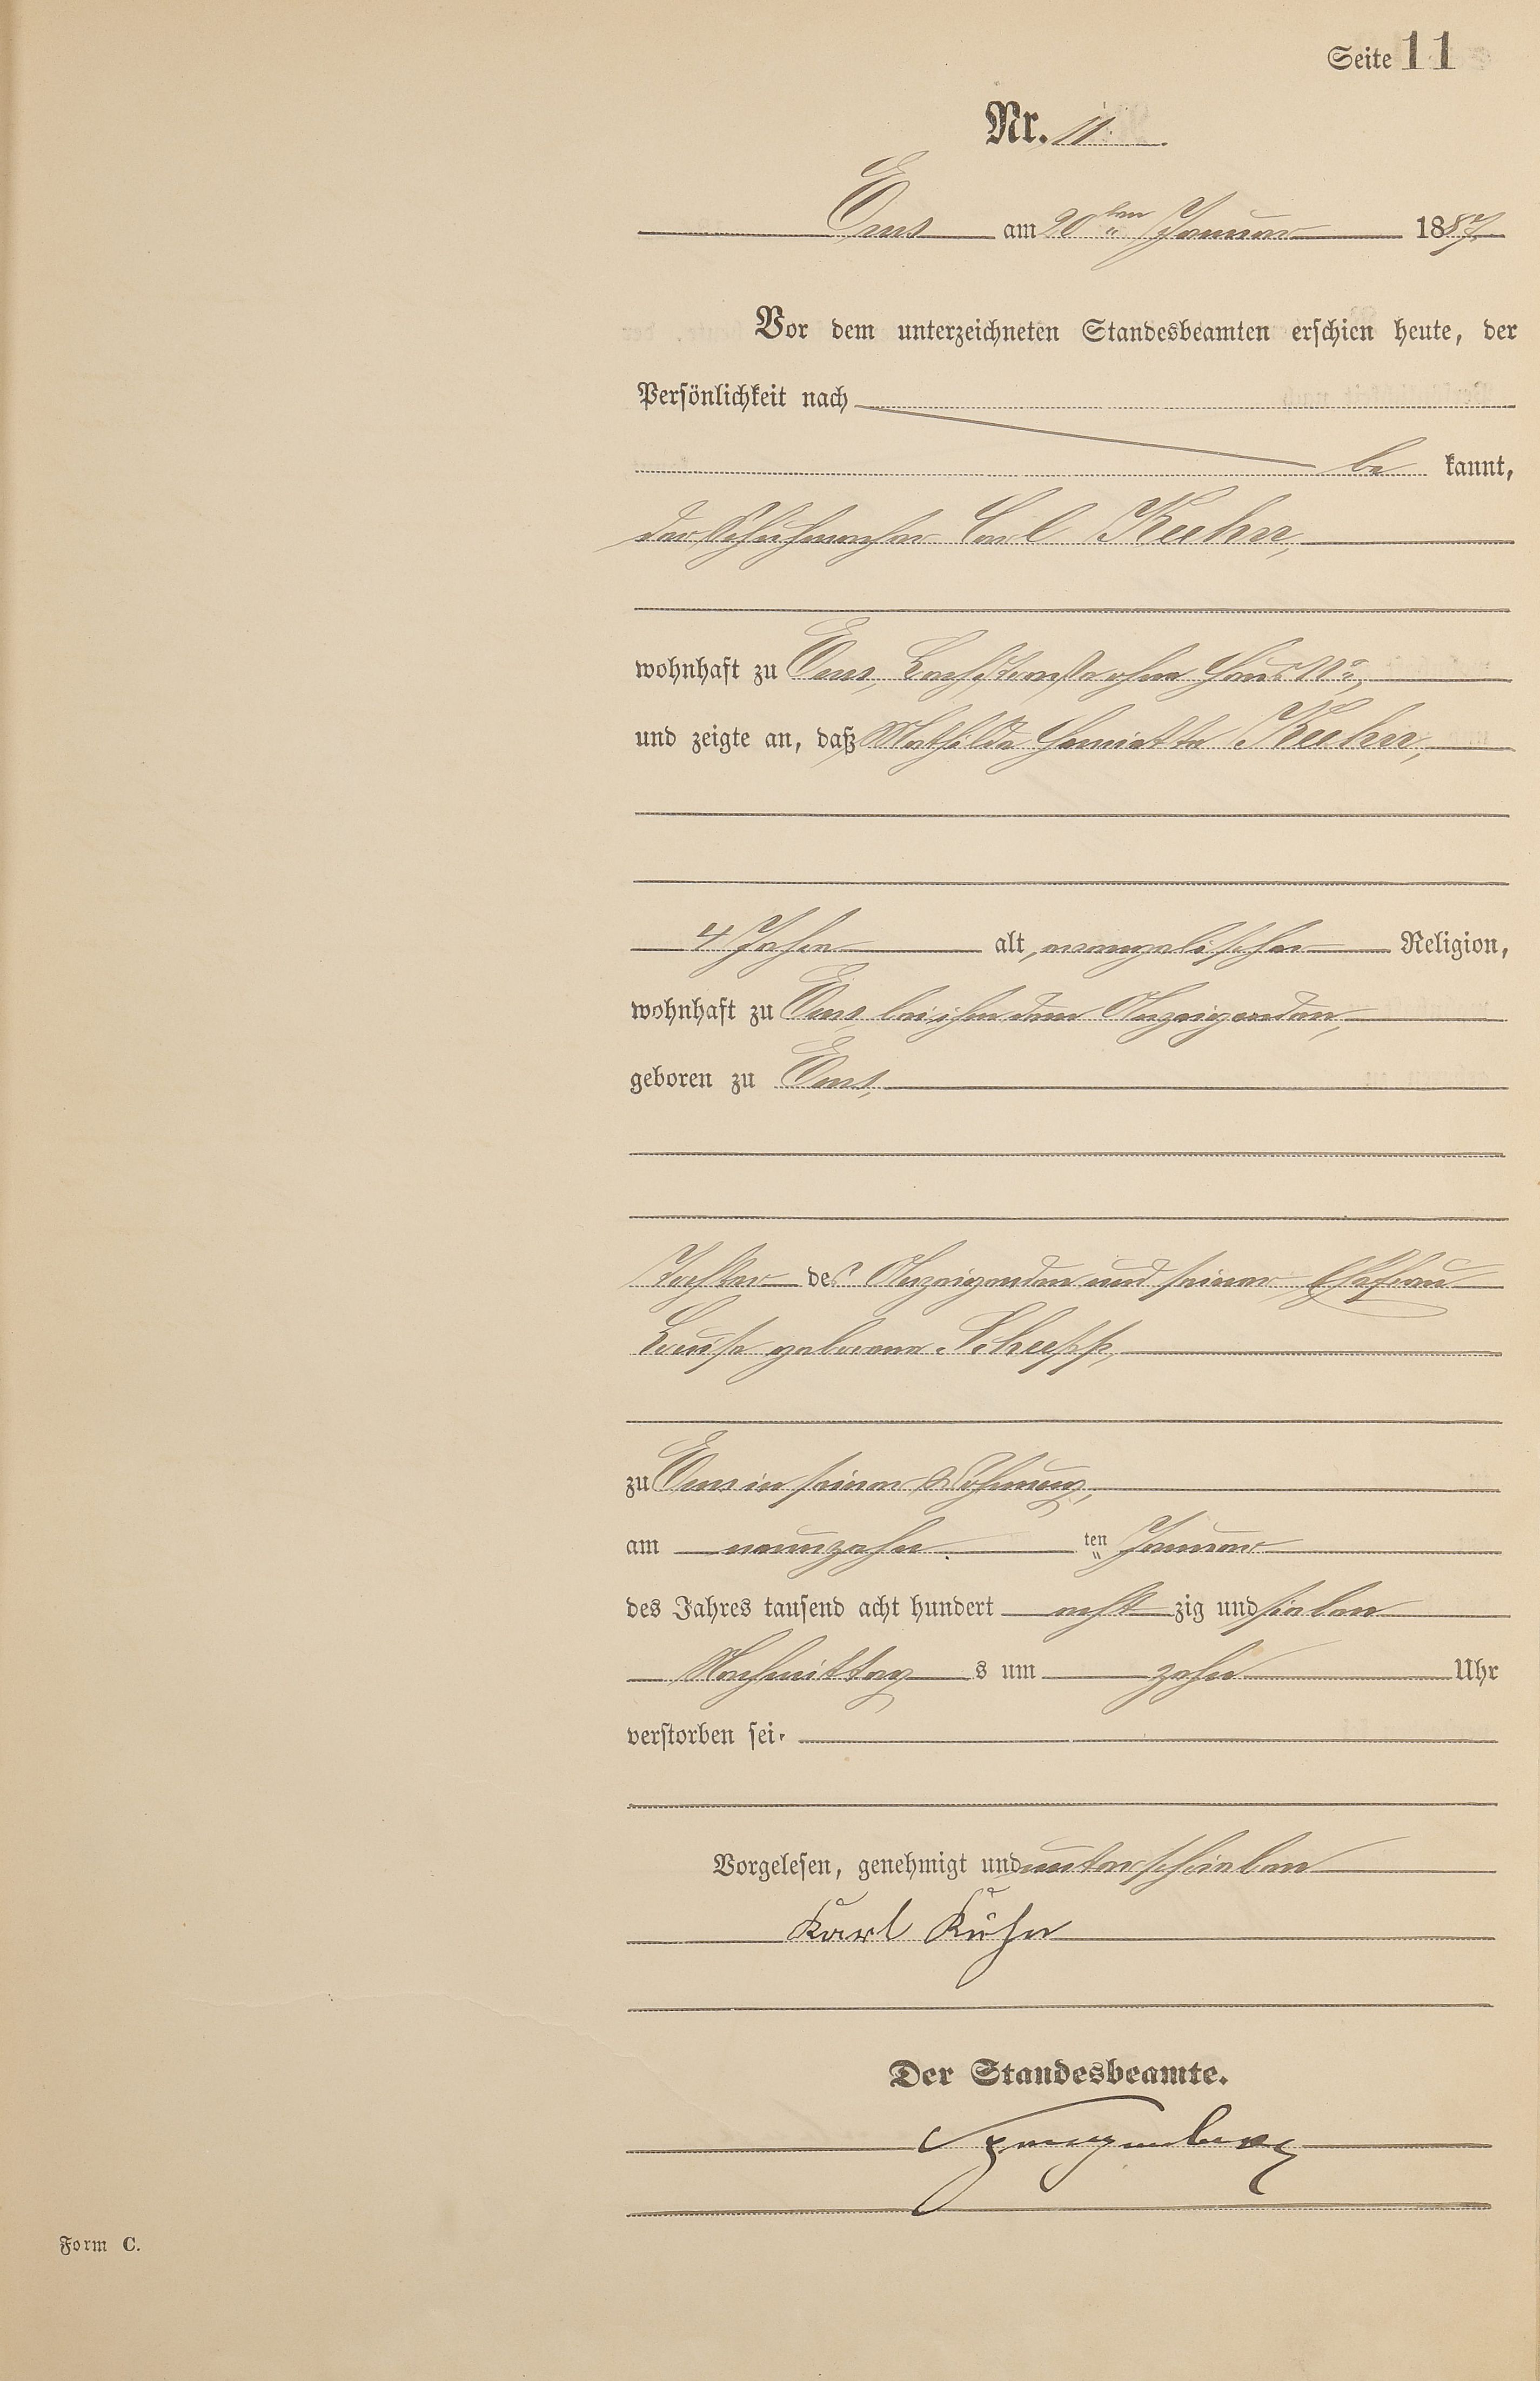 Seite 11
Nr. 11.
Ems am 20ten Januar 1887
Vor dem unterzeichneten Standesbeamten erschien heute, der
Persönlichkeit nach
be kannt,
der Schuhmacher Carl Kuhn,
wohnhaft zu Ems, Bachstraße ohne Haus No,
und zeigte an, daß Mathilde Henriette Kuhn,
4 Jahre alt, evangelischer Religion,
wohnhaft zu Ems, bei ihm dem Anzeigenden,
geboren zu Ems,
Tochter des Anzeigenden und seiner Ehefrau
Louise geborene Schupp,
zu Ems in seiner Wohnung,
am neunzehn ten Januar
des Jahres tausend acht hundert acht zig und sieben
Nachmittag s um zehn Uhr
verstorben sei.
Vorgelesen, genehmigt und unterschrieben
Karl Kuhn
Der Standesbeamte.
Form C.